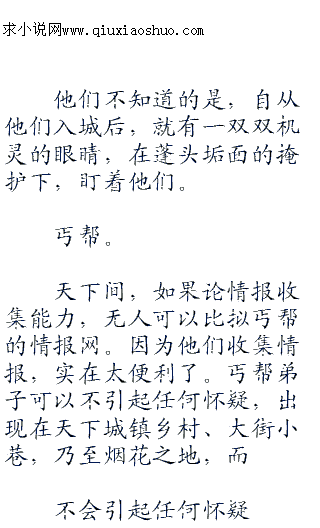 求小说网www.qiuxiaoshuo.com
他们不知道的是，自从
他们入城后，就有一双双机
灵的眼睛，在蓬头垢面的掩
护下，盯着他们。
丐帮。
天下间，如果论情报收
集能力，无人可以比拟丐帮
的情报网。因为他们收集情
报，实在太便利了。丐帮弟
子可以不引起任何怀疑，出
现在天下城镇乡村、大街小
巷，乃至烟花之地，而
不会引起任何怀疑